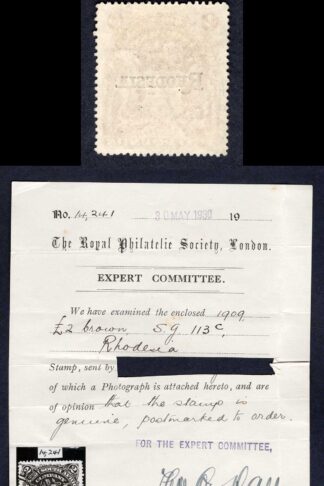 RHODESIA.
No. 14,241 30 MAY 1930 19
The Royal Philatelic Society, London.
EXPERT COMMITTEE.
We have examined the enclosed 1909
£2 brown, S.G 113c,
Rhodesia
Stamp, sent by
of which a Photograph is attached hereto, and are
of opinion that the stamp is
genuine, postmarked to order.
FOR THE EXPERT COMMITTEE,
14,241
SOUTH